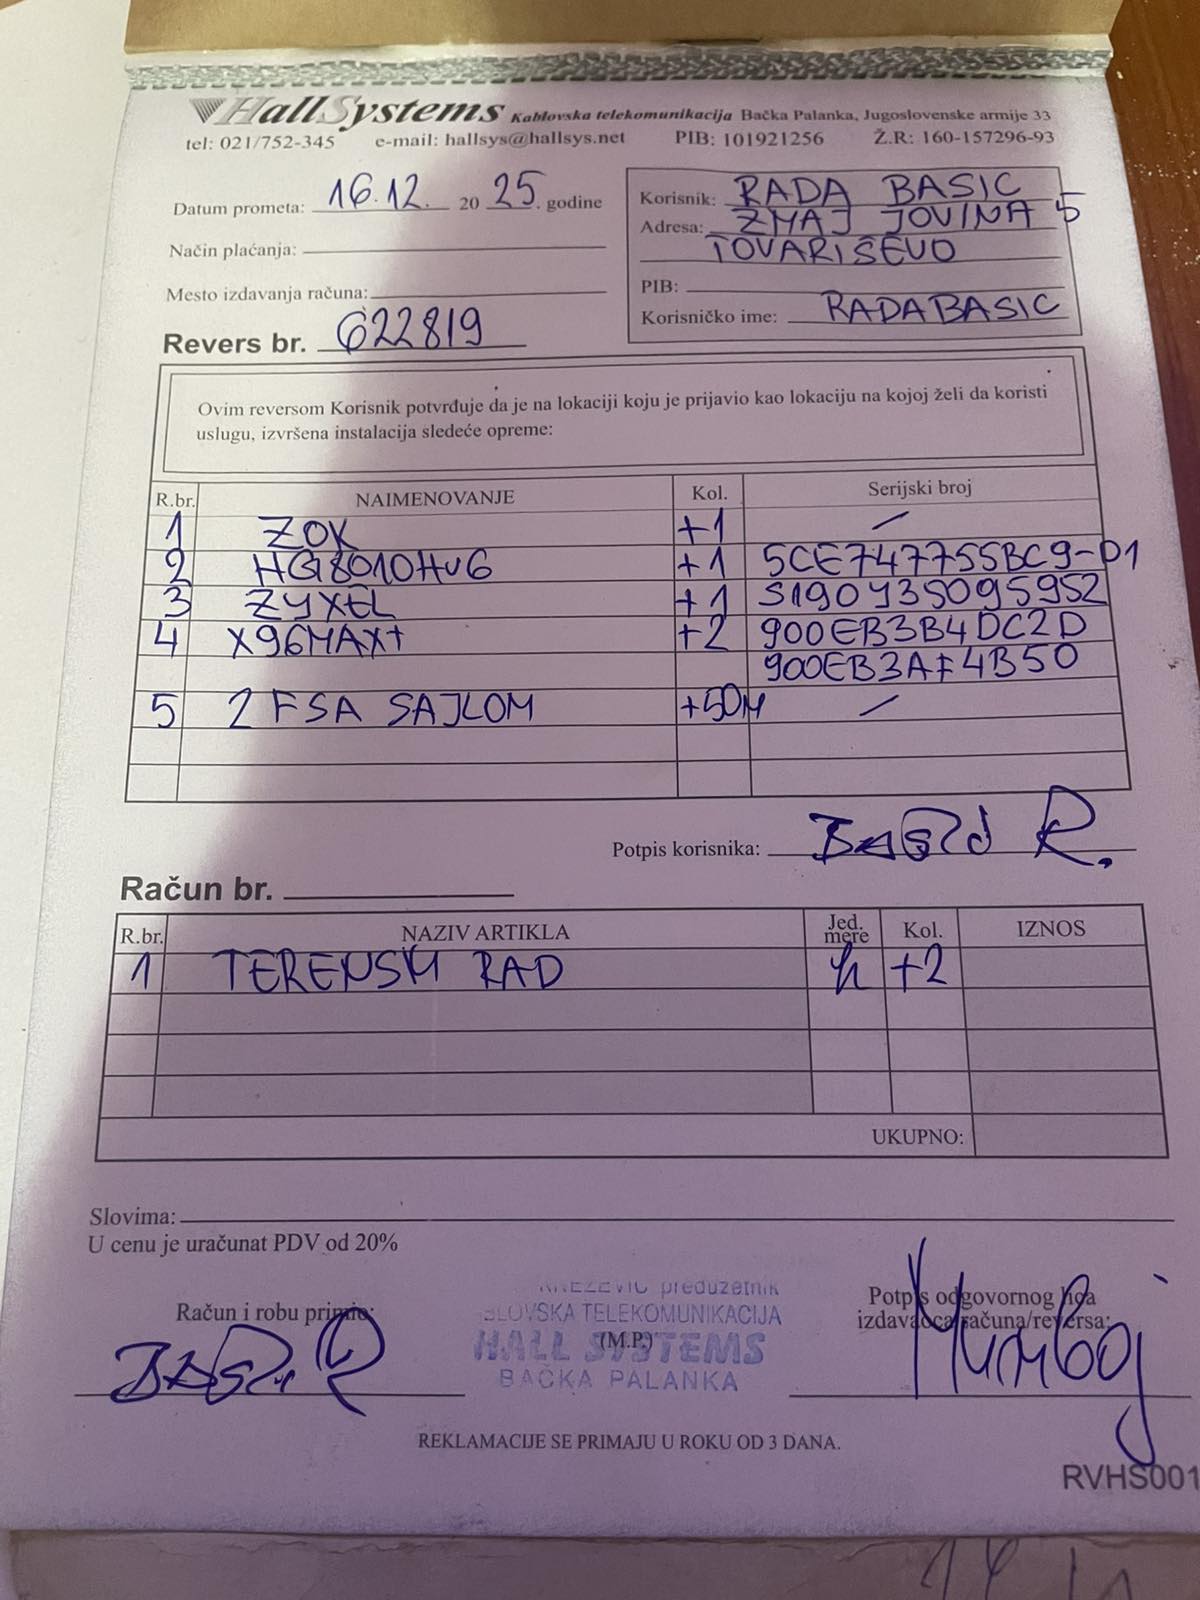 HallSystems Kablovska telekomunikacija Bačka Palanka, Jugoslovenske armije 33
tel: 021/752-345 e-mail: hallsys@hallsys.net PIB: 101921256 Ž.R: 160-157296-93
Datum prometa: 16.12. 20 25. godine
Način plaćanja:
Mesto izdavanja računa:
Revers br. 622819
Korisnik: RADA BASIC
Adresa: ZMAJ JOVINA 5
TOVARIŠEVO
PIB:
Korisničko ime: RADABASIC
Ovim reversom Korisnik potvrđuje da je na lokaciji koju je prijavio kao lokaciju na kojoj želi da koristi
uslugu, izvršena instalacija sledeće opreme:
R.br. NAIMENOVANJE Kol. Serijski broj
1 ZOK +1 /
2 HG8010Hv6 +1 5CE747755BC9-D1
3 ZYXEL +1 S190Y35095952
4 X96MAX+ +2 900EB3B4DC2D
900EB3AF4B50
5 2 FSA SAJLOM +50M /
Potpis korisnika:
Račun br.
R.br. NAZIV ARTIKLA Jed. mere Kol. IZNOS
1 TERENSKI RAD h +2
UKUPNO:
Slovima:
U cenu je uračunat PDV od 20%
Račun i robu primio:
KNEZEVIC preduzetnik
BLOVSKA TELEKOMUNIKACIJA
(M.P.)
HALL SYSTEMS
BACKA PALANKA
Potpis odgovornog lica
izdavaoca računa/reversa:
REKLAMACIJE SE PRIMAJU U ROKU OD 3 DANA.
RVHS001